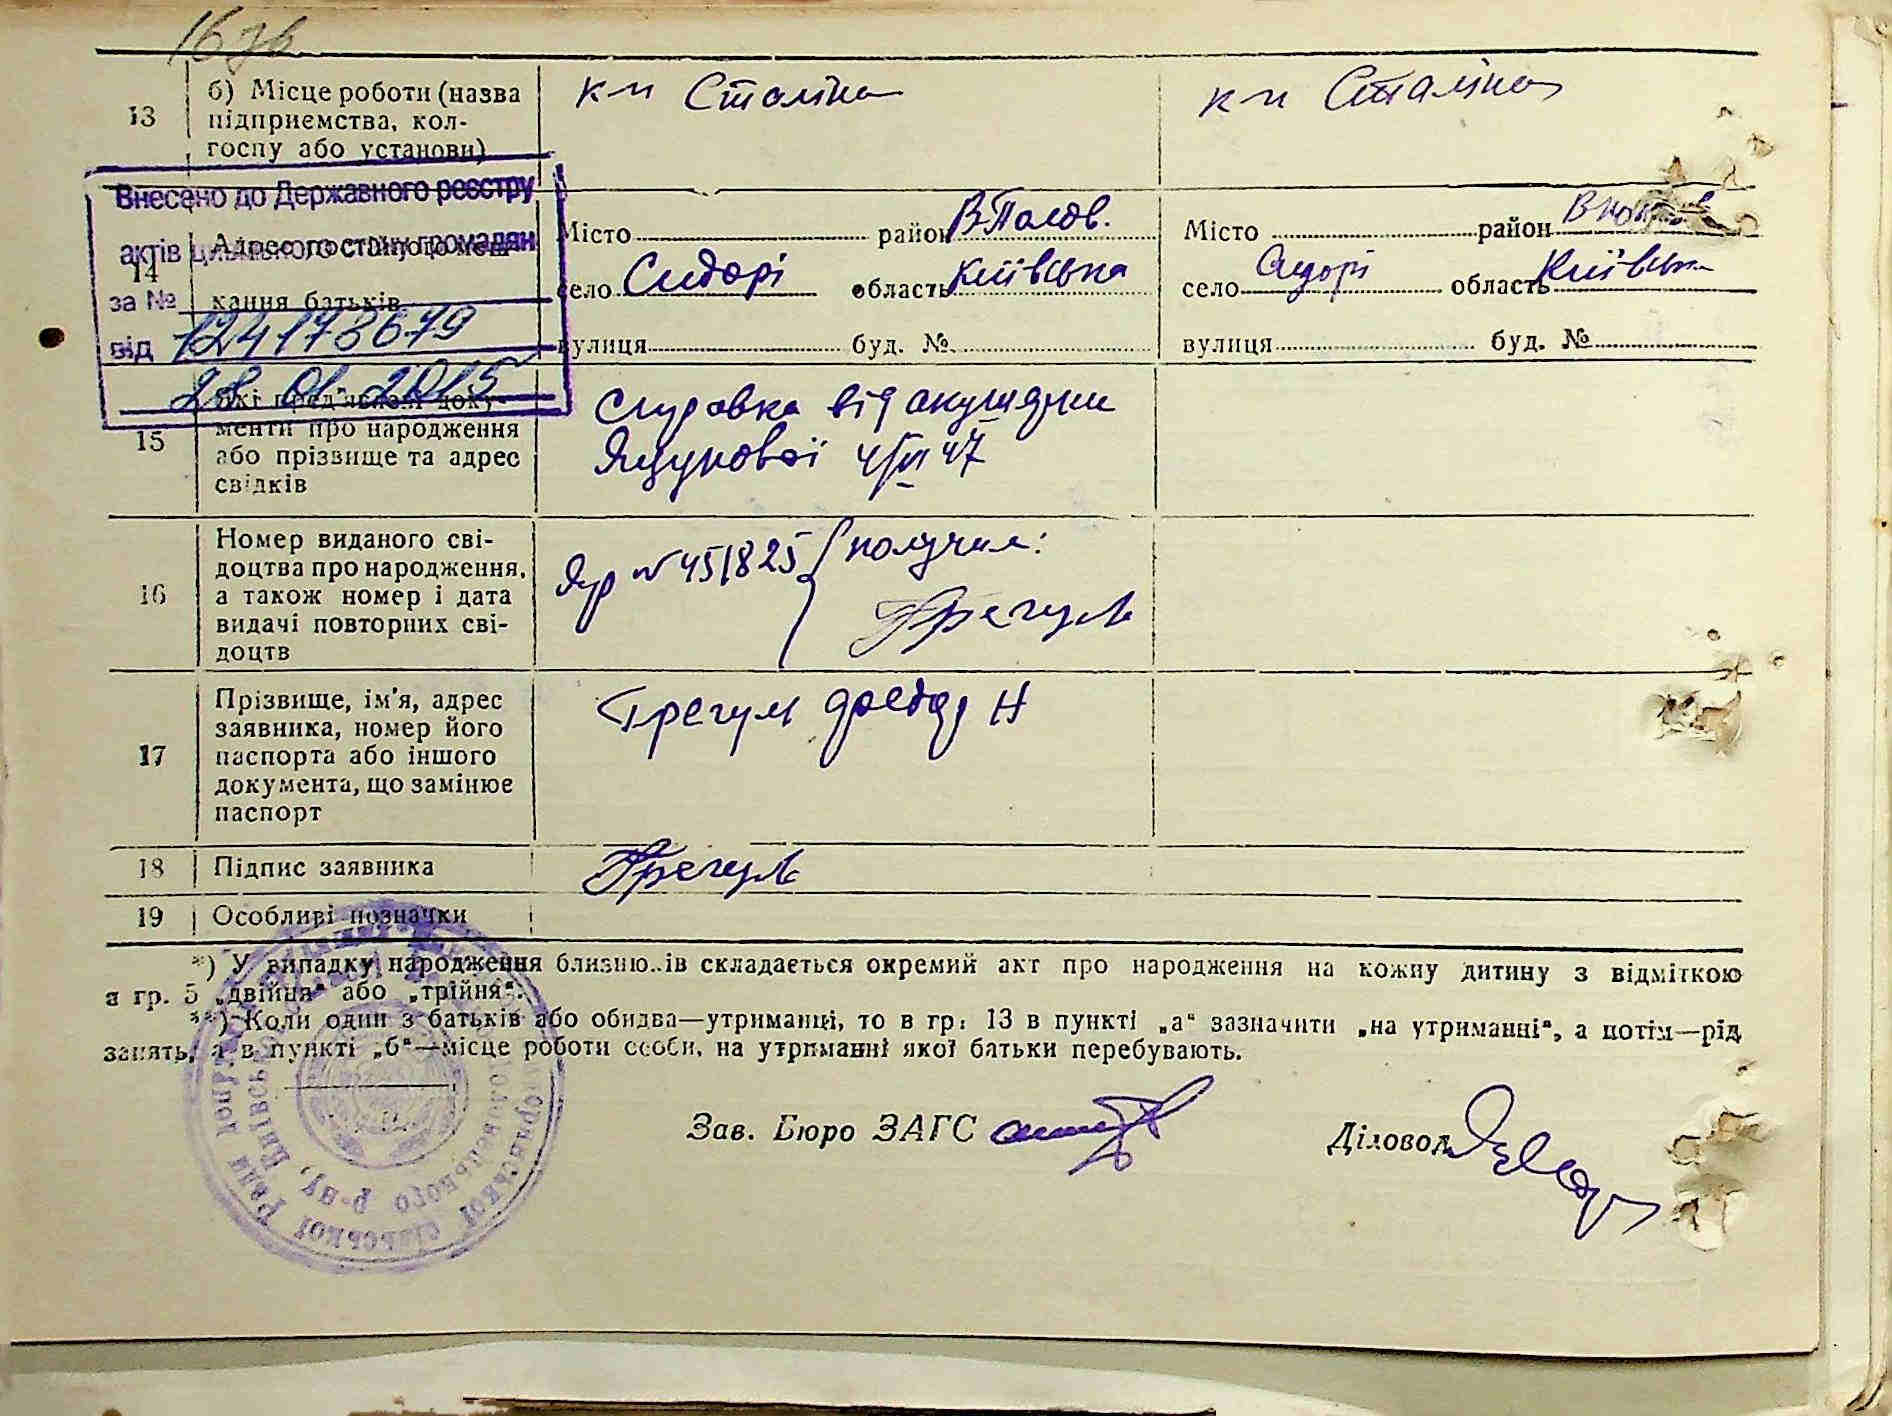 16 зв
13
б) Місце роботи (назва підприємства, колгоспу або установи)
к-п Сталіна
к-п Сталіна
Внесено до Державного реєстру
актів цивільного стану громадян
за №
1241178679
від
28.01.2015
14
Адрес постійного меш-
кання батьків
Місто район В-Полов.
село Сидорі область Київська
вулиця буд. №
Місто район
село Сидорі область Київська
вулиця буд. №
15
які пред'явлені доку-
менти про народження
або прізвище та адрес
свідків
Справка від акушерки
Яцукової 4/VI 47
16
Номер виданого сві-
доцтва про народження,
а також номер і дата
видачі повторних сві-
доцтв
№ 451825 получил:
17
Прізвище, ім'я, адрес
заявника, номер його
паспорта або іншого
документа, що замінює
паспорт
18
Підпис заявника
19
Особливі позначки
*) У випадку народження близню..ів складається окремий акт про народження на кожну дитину з відміткою
в гр. 5 „двійня“ або „трійня“.
**) Коли один з батьків або обидва—утриманці, то в гр. 13 в пункті „а“ зазначити „на утриманні“, а потім—рід
занять, а в пункті „б“—місце роботи особи, на утриманні якої батьки перебувають.
Зав. Бюро ЗАГС
Діловод